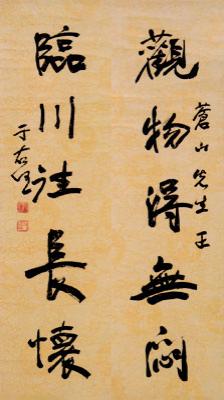 蒼山先生正
觀物得無悶
臨川長懷
于右任